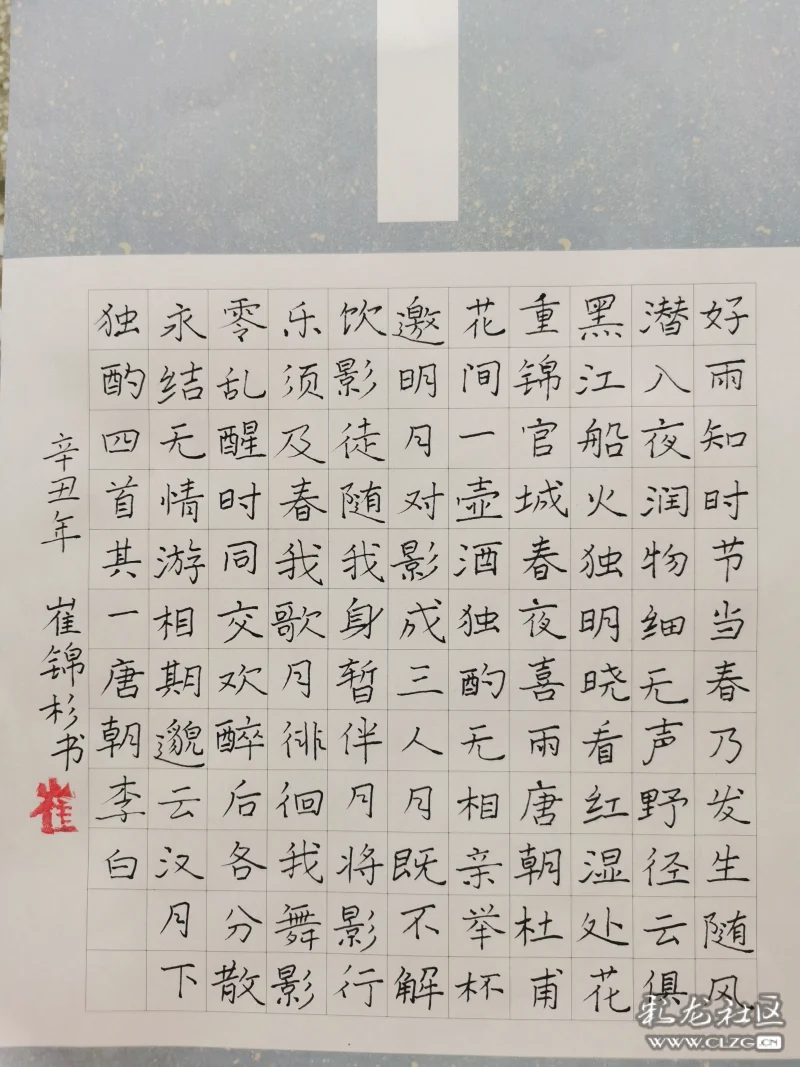 好雨知时节当春乃发生随风
潜入夜润物细无声野径云俱
黑江船火独明晓看红湿处花
重锦官城春夜喜雨唐朝杜甫
花间一壶酒独酌无相亲举杯
邀明月对影成三人月既不解
饮影徒随我身暂伴月将影行
乐须及春我歌月徘徊我舞影
零乱醒时同交欢醉后各分散
永结无情游相期邈云汉月下
独酌四首其一唐朝李白
辛丑年 崔锦杉书
崔
化龙社区
WWW.CLZG.CN